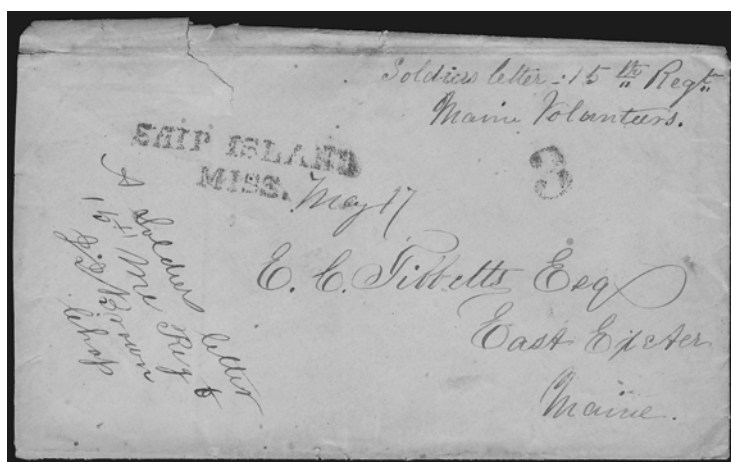 Soldiers letter - 15th Regt
Maine Volunteers.
SHIP ISLAND
MISS.
3
May 17
E. C. Tibbetts Esq
East Exeter
Maine.
A Soldiers letter
15th Me Regt
Brown
Chap